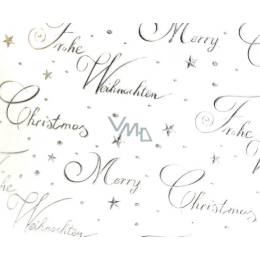 Frohe Merry
Weihnachten
Christmas Frohe
VMD
Merry
Frohe Christmas
Weihnachten